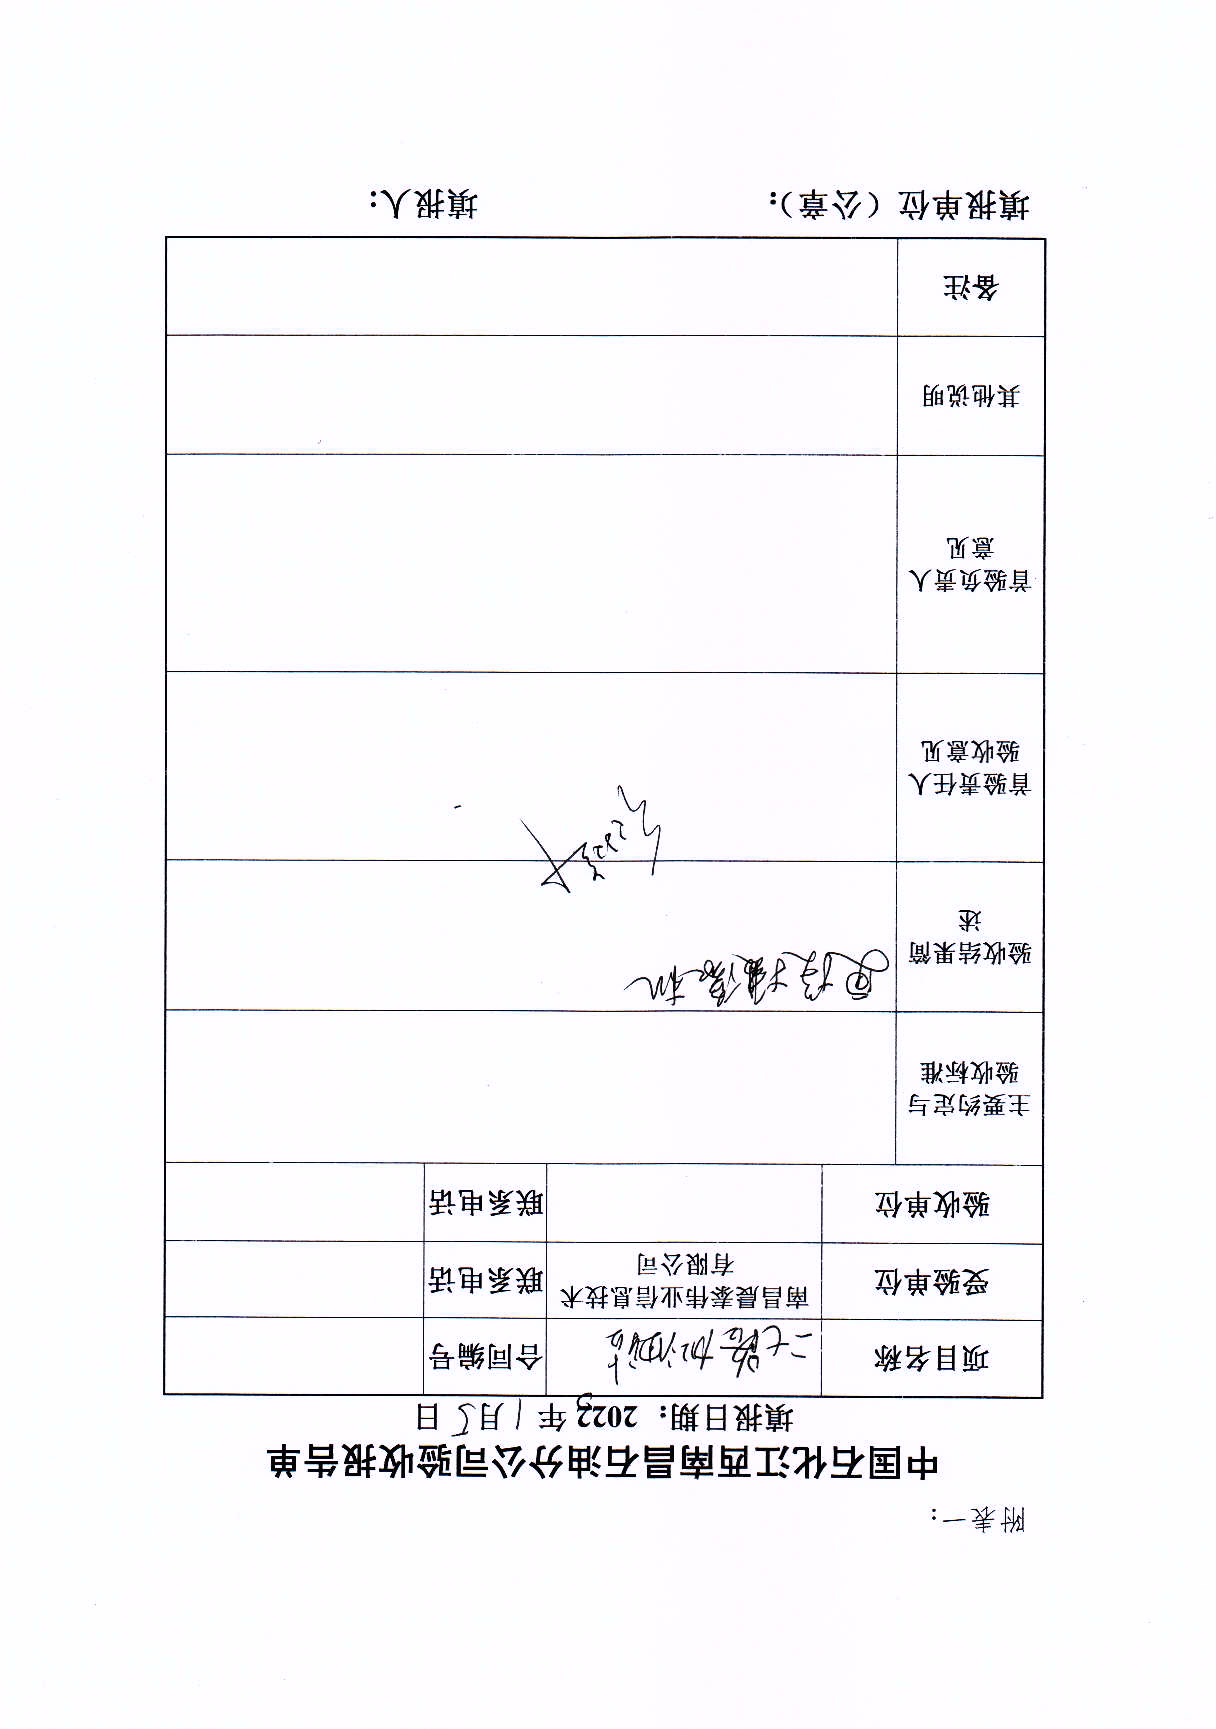 附表一：
中国石化江西南昌石油分公司验收报告单
填报日期：2023年1月5日
项目名称 二七路加油站 合同编号
受验单位 南昌晨泰伟业信息技术
有限公司 联系电话
验收单位 联系电话
主要约定与
验收标准
验收结果简
述
更换摄像机
首验责任人
验收意见
首验负责人
意见
其他说明
备注
填报单位（公章）： 填报人：